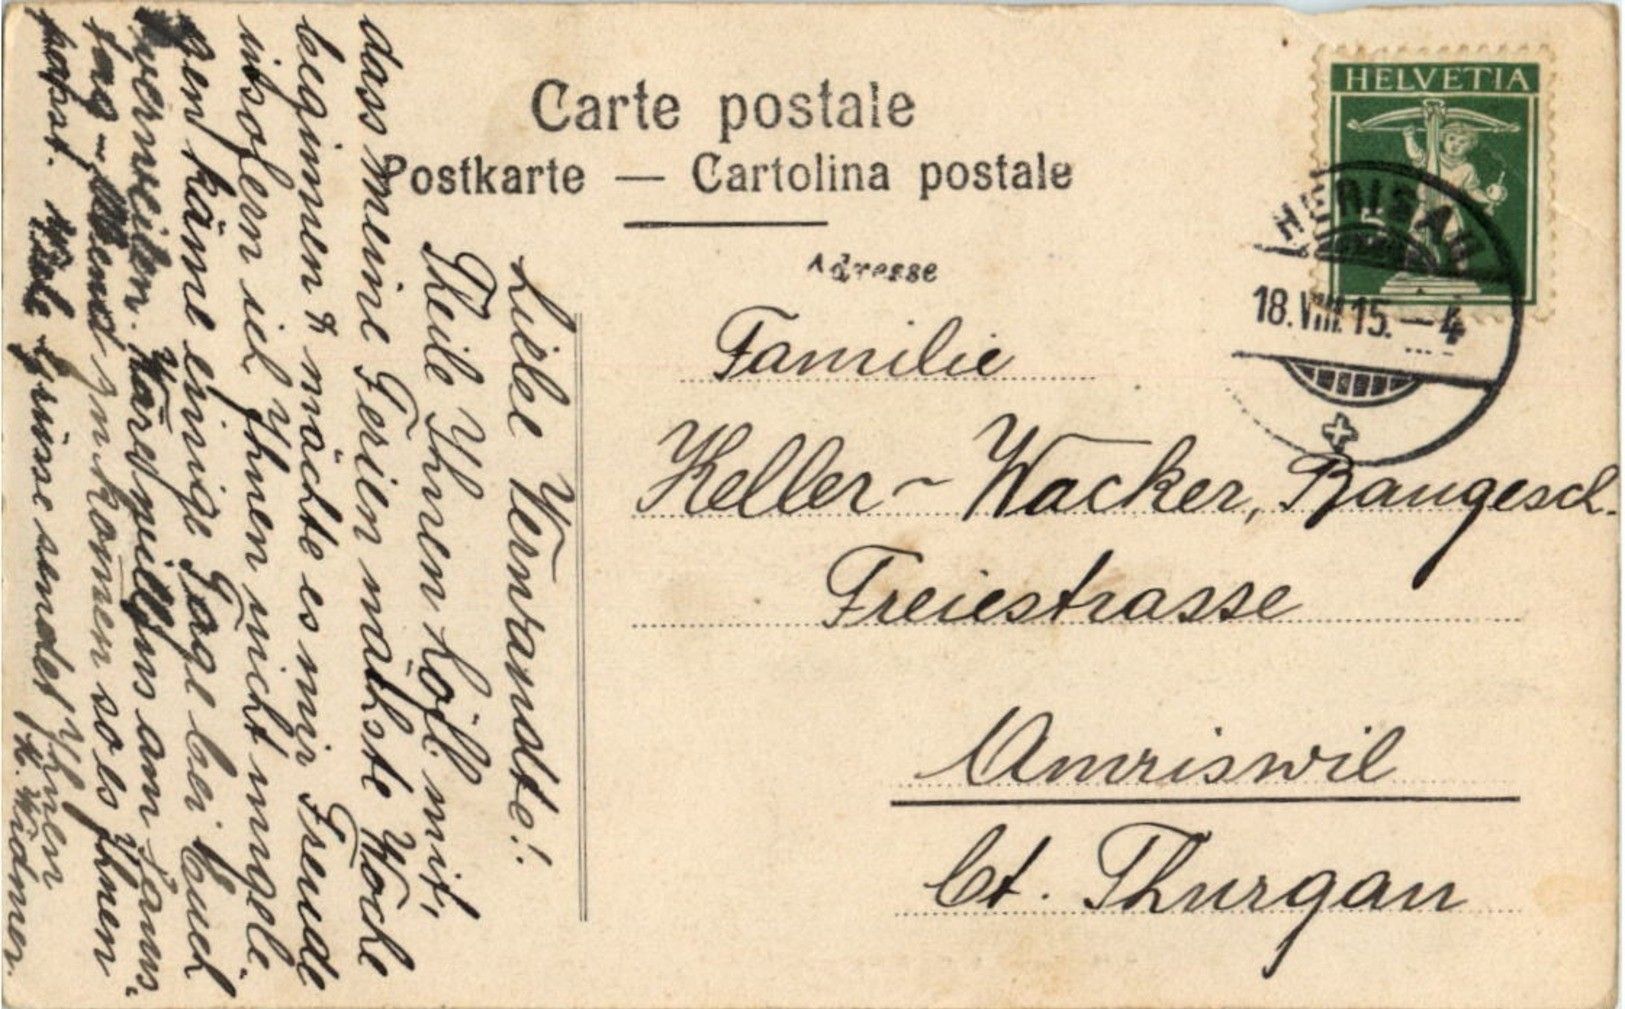 Carte postale
Postkarte — Cartolina postale
Adresse
HELVETIA
HERISAU
18.VIII.15.—4
Familie
Keller-Wacker, Baugesch.
Freiestrasse
Amriswil
Ct. Thurgau
Liebe Verwandte!
Theile Ihnen höfl. mit,
dass meine Ferien nächste Woche
beginnen & möchte es mir Freude
insofern ich Ihnen nicht ungele-
gen käme einige Tage bei Euch
zu verweilen. Wäre willens am Sams-
tag-Abend zu kommen so es Ihnen
passt. Viele Grüsse sendet Ihnen
H. Widmer.